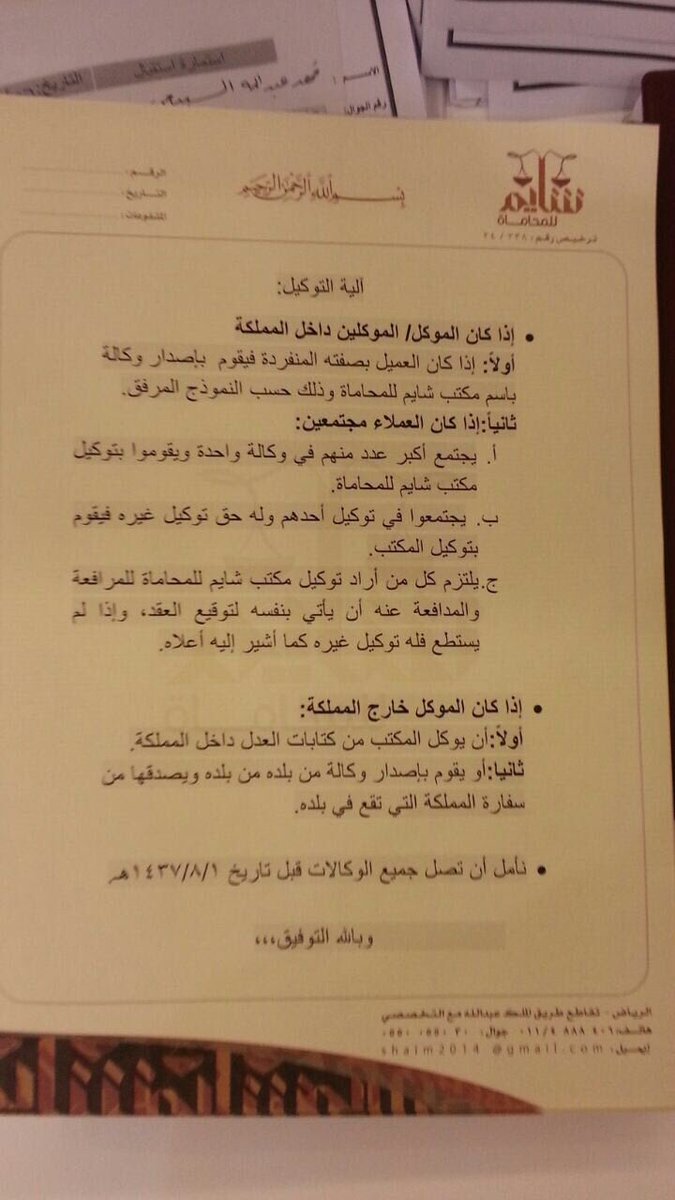 استمارة استقبال
التاريخ:
الاسم :
رقم الجوال:
شايم
للمحاماة
ترخيص رقم: ٢٤ / ٢٣٨
بسم الله الرحمن الرحيم
الرقم:
التاريخ:
المشفوعات:
آلية التوكيل:
• إذا كان الموكل/ الموكلين داخل المملكة
أولاً: إذا كان العميل بصفته المنفردة فيقوم بإصدار وكالة
باسم مكتب شايم للمحاماة وذلك حسب النموذج المرفق.
ثانياً:إذا كان العملاء مجتمعين:
أ. يجتمع أكبر عدد منهم في وكالة واحدة ويقوموا بتوكيل
مكتب شايم للمحاماة.
ب. يجتمعوا في توكيل أحدهم وله حق توكيل غيره فيقوم
بتوكيل المكتب.
ج.يلتزم كل من أراد توكيل مكتب شايم للمحاماة للمرافعة
والمدافعة عنه أن يأتي بنفسه لتوقيع العقد، وإذا لم
يستطع فله توكيل غيره كما أشير إليه أعلاه.
• إذا كان الموكل خارج المملكة:
أولاً:أن يوكل المكتب من كتابات العدل داخل المملكة.
ثانيا:أو يقوم بإصدار وكالة من بلده من بلده ويصدقها من
سفارة المملكة التي تقع في بلده.
• نأمل أن تصل جميع الوكالات قبل تاريخ ١٤٣٧/٨/١هـ
وبالله التوفيق،،،
الرياض - تقاطع طريق الملك عبدالله مع التخصصي
هاتف: ٠١١/٤ ٨٨٨ ٤٠٦ جوال:
إيميل: shaim2014 @gmail.com